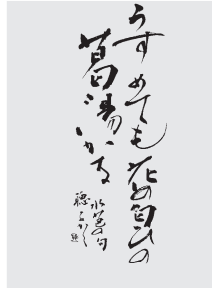 うすめても花の匂ひの
葛湯かな
水巴の句